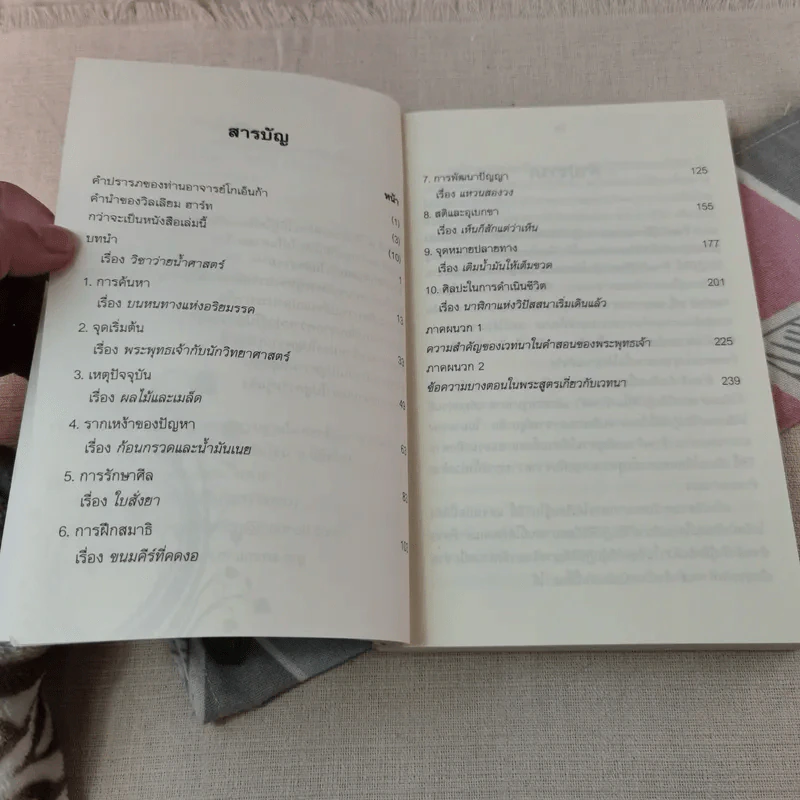 สารบัญ
หน้า
คำปรารภของท่านอาจารย์โกเอ็นก้า (1)
คำนำของวิลเลียม ฮาร์ท (3)
กว่าจะเป็นหนังสือเล่มนี้ (10)
บทนำ 1
เรื่อง วิชาว่ายน้ำศาสตร์
1. การค้นหา 13
เรื่อง บนหนทางแห่งอริยมรรค
2. จุดเริ่มต้น 33
เรื่อง พระพุทธเจ้ากับนักวิทยาศาสตร์
3. เหตุปัจจุบัน 49
เรื่อง ผลไม้และเมล็ด
4. รากเหง้าของปัญหา 63
เรื่อง ก้อนกรวดและน้ำมันเนย
5. การรักษาศีล 83
เรื่อง ใบสั่งยา
6. การฝึกสมาธิ 103
เรื่อง ขนมคีร์ที่คดงอ
7. การพัฒนาปัญญา 125
เรื่อง แหวนสองวง
8. สติและอุเบกขา 155
เรื่อง เห็นก็สักแต่ว่าเห็น
9. จุดหมายปลายทาง 177
เรื่อง เติมน้ำมันให้เต็มขวด
10. ศิลปะในการดำเนินชีวิต 201
เรื่อง นาฬิกาแห่งวิปัสสนาเริ่มเดินแล้ว
ภาคผนวก 1
ความสำคัญของเวทนาในคำสอนของพระพุทธเจ้า 225
ภาคผนวก 2
ข้อความบางตอนในพระสูตรเกี่ยวกับเวทนา 239